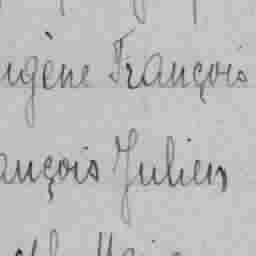 ugène François
ançois Julien